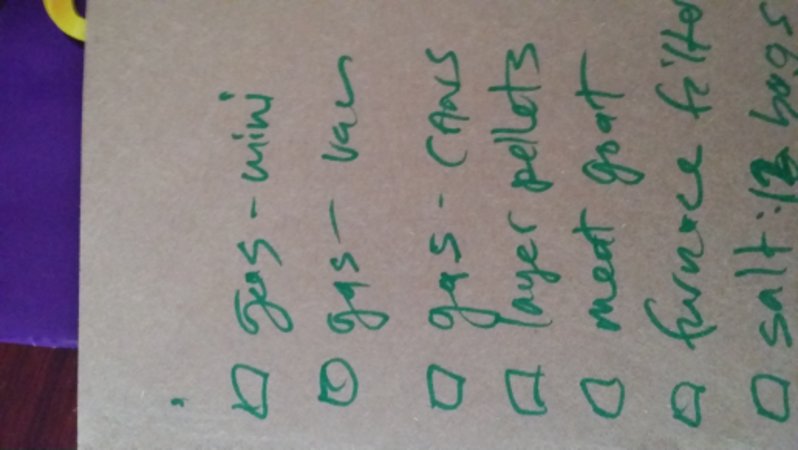 gas - mini
gas - van
gas - cans
layer pellets
meat goat
furnace filte
salt: 12 bags